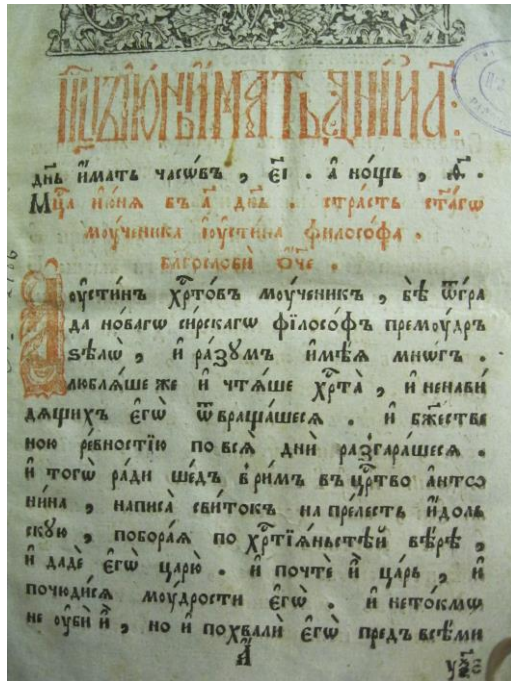 мⷭ҇цъ і҆ю́нь и҆́мать дні́й л҃:
дн҃ь и҆́мать часѡ́въ , є҃і . а҆ но́щь , ѳ҃ .
Мцⷭ҇а і҆ю́нѧ въ а҃ дн҃ь . стра́сть ст҃а́гѡ
моу́ченика і҆оусті́на філосо́фа .
благословѝ ѻ҆́ч҃е .
І҆оусті́нъ хрⷭ҇то́въ моу́ченикъ , бѣ̀ ѿ гра
да но́вагѡ сі́рскагѡ філосо́фъ премоу́дръ
ѕѣлѡ̀ , и҆ ра́зумъ и҆мѣ́ѧ мно́гъ .
люблѧ́ше же и҆ чтѧ́ше хрⷭ҇та̀ , и҆ ненави́
дѧщихъ є҆гѡ̀ ѿвраща́шесѧ . и҆ бж҃естве
ною ре́вностїю по всѧ̀ дни̑ разгара́шесѧ .
и҆ тогѡ̀ ра́ди ше́дъ в ри́мъ въ црⷭ҇тво а҆нтѡ
ни́на , написа̀ сви́токъ на пре́лесть и҆́доль
скую , побора́ѧ по хрⷭ҇тїѧ́ньстѣй вѣ́рѣ ,
и҆ дадѐ є҆гѡ̀ царю̀ . и҆ почтѐ и҆̀ ца́рь , и҆
почюди́сѧ моу́дрости є҆гѡ̀ . и҆ нето́кмѡ
не оу҆бѝ и҆̀ , но и҆ похвалѝ є҆гѡ̀ предъ всѣ́ми
а҃ оу҆же